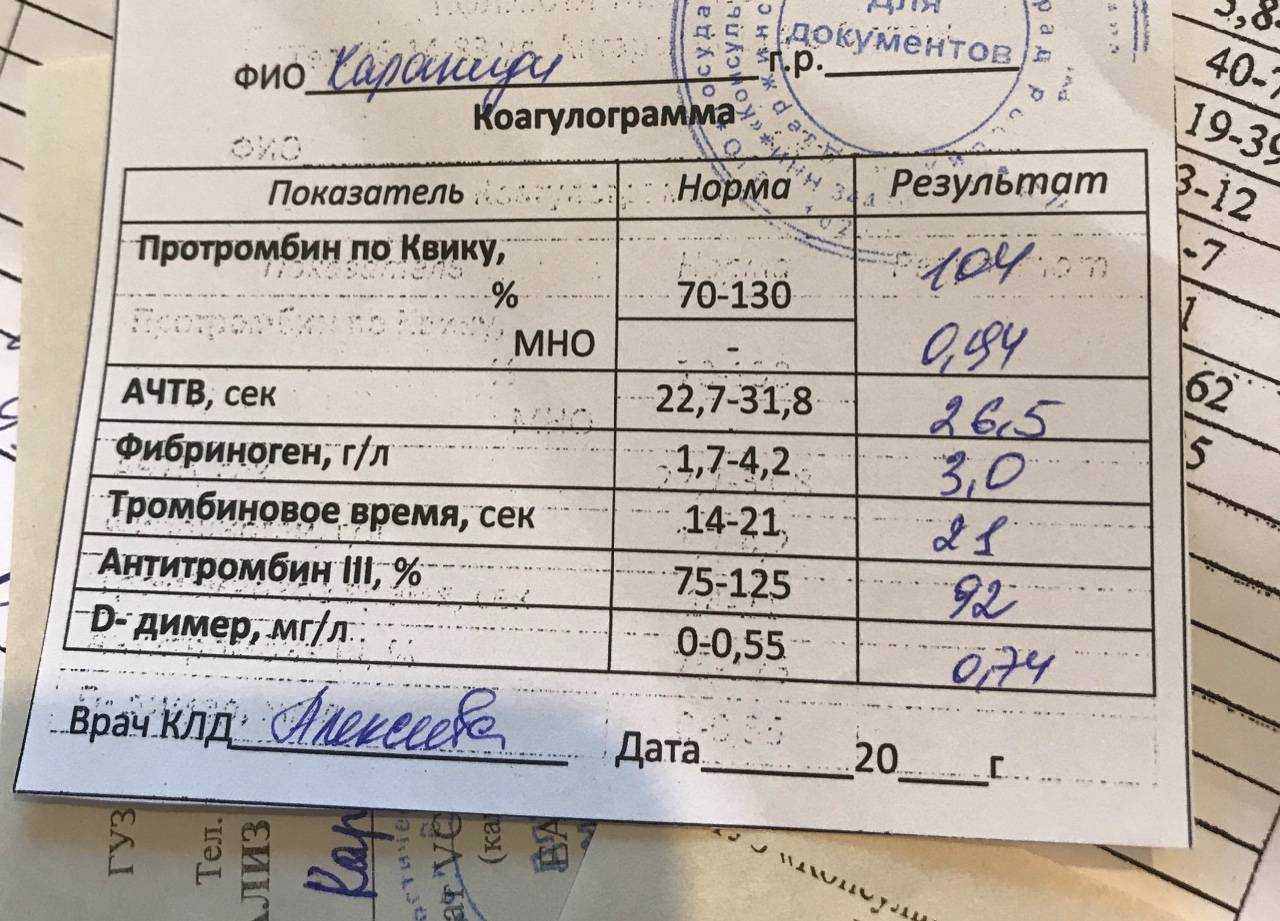 для
документов
ФИО г.р.
Коагулограмма
Показатель Норма Результат
Протромбин по Квику, 104
% 70-130
МНО - 0,94
АЧТВ, сек 22,7-31,8 26,5
Фибриноген, г/л 1,7-4,2 3,0
Тромбиновое время, сек 14-21 21
Антитромбин III, % 75-125 92
D- димер, мг/л 0-0,55 0,74
Врач КЛД Алексеева Дата 20 г
40-
19-39
3-12
-7
1
62
5
ГУЗ
Тел.
АЛИЗ
Кар